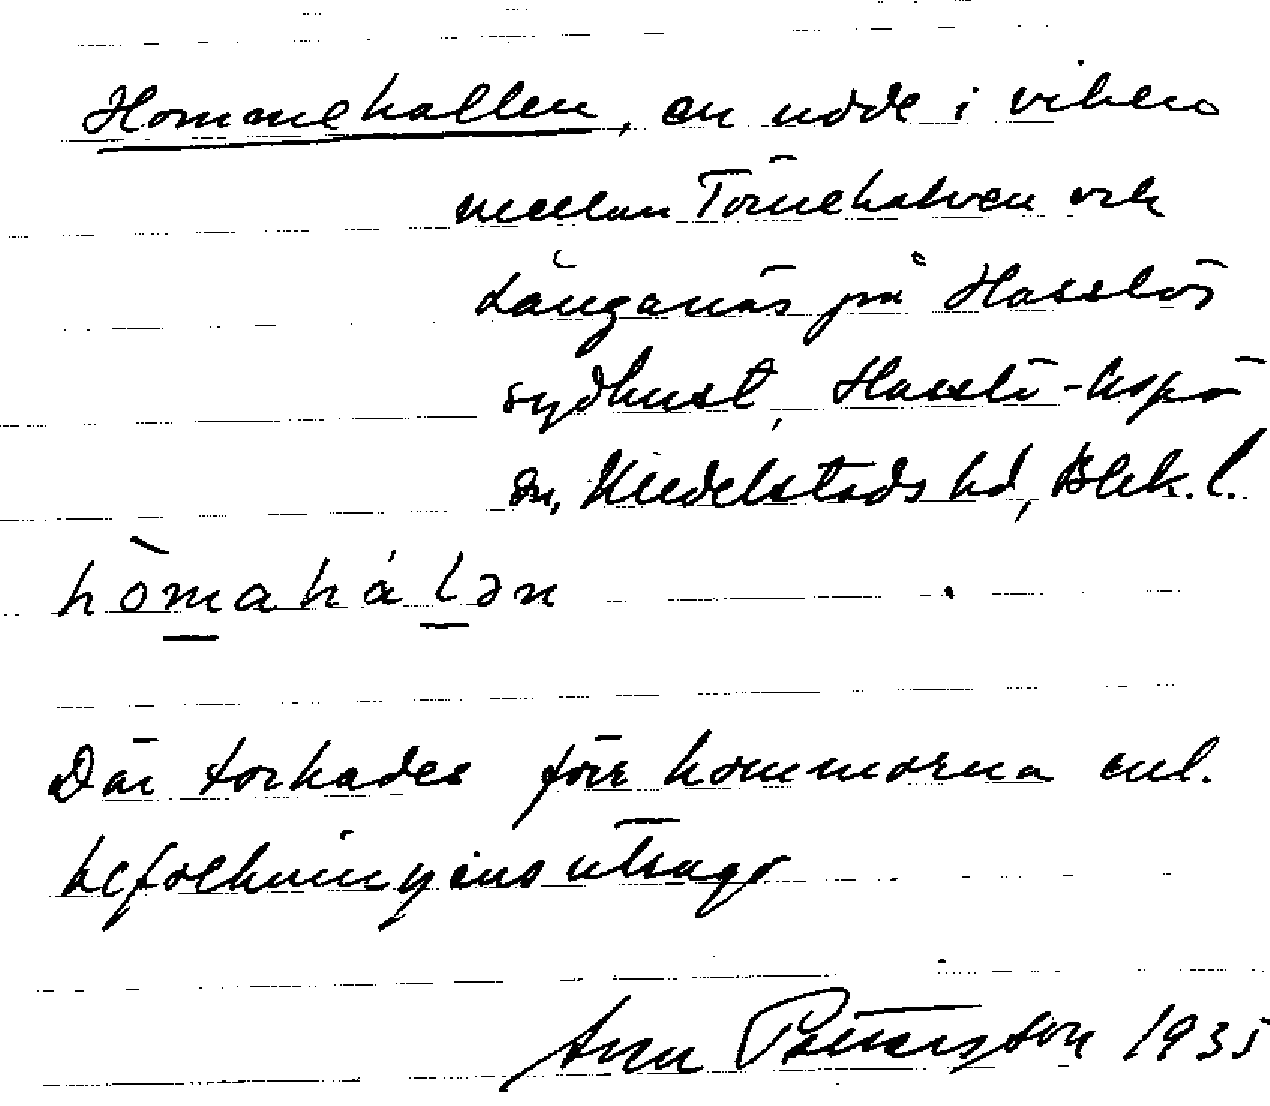 Hommehallen, en udde i viken
mellan Tornehalven och
Långanäs på Hasslös
sydkust, Hasslö-kapä
sn, Medelstads hd, Blek. l.
hòmahálən
Där torkades förr hommorna enl.
befolkningens utsago
Pettersson 1935